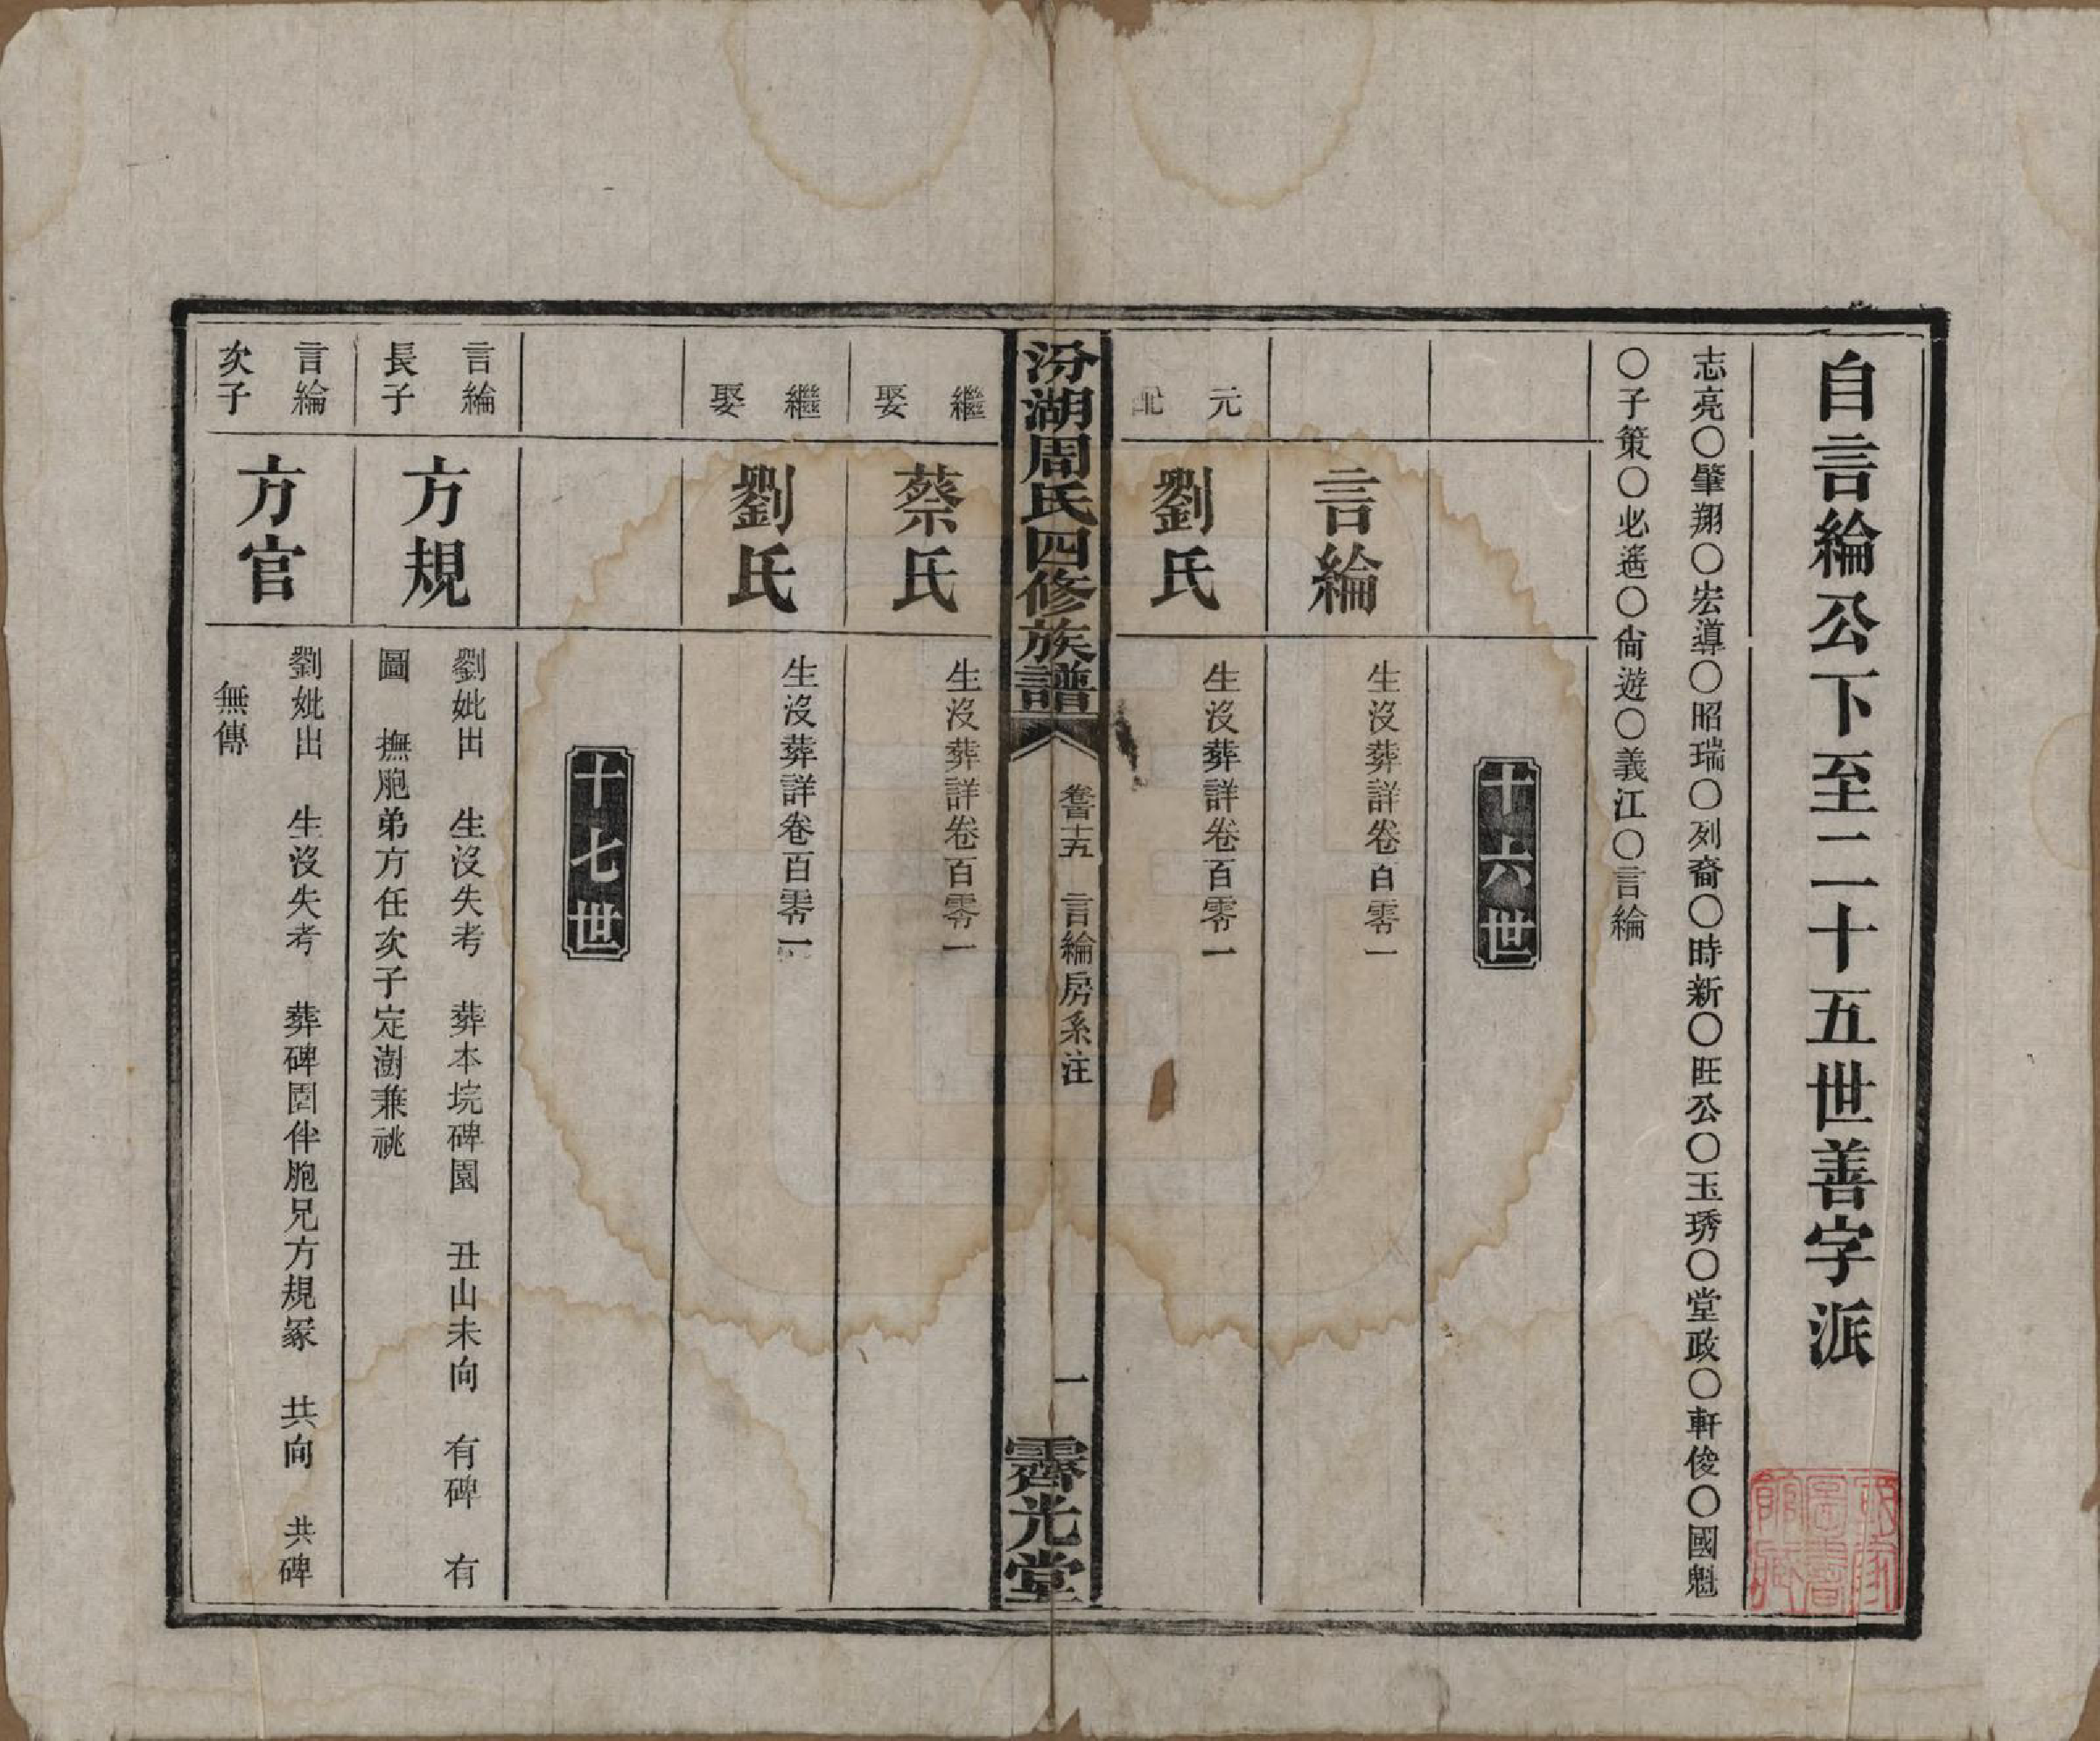 自言綸公下至二十五世善字派
志亮〇肇翔〇宏導〇昭瑞〇列裔〇時新〇旺公〇玉琇〇堂政〇軒俊〇國魁
〇子策〇必遙〇尙遊〇義江〇言綸
十六世
言綸
生沒葬詳卷百零一
元配
劉氏
生沒葬詳卷百零一
汾湖周氏四修族譜
卷百十五
言綸房系注
一
霽光堂
繼娶
蔡氏
生沒葬詳卷百零一
繼娶
劉氏
生沒葬詳卷百零一
十七世
言綸
長子
方規
劉妣出 生沒失考 葬本垸碑園 丑山未向 有碑 有
圖 撫胞弟方任次子定澍兼祧
言綸
次子
方官
劉妣出 生沒失考 葬碑園伴胞兄方規冢 共向 共碑
無傳